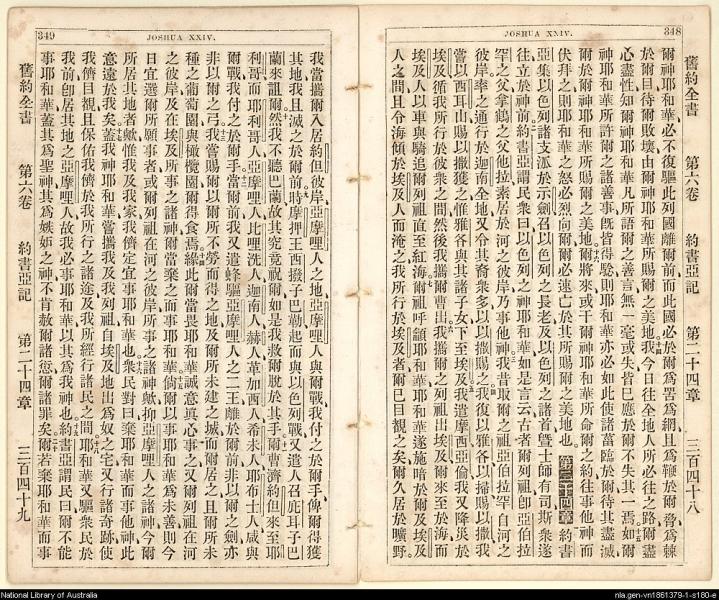 JOSHUA XXIV.
348
舊約全書 第六卷 約書亞記 第二十四章 三百四十八
爾神耶和華必不復驅此列國離爾前而此國必於爾為罟為網且為鞭於爾脅為棘
於爾目待爾敗壞由爾神耶和華所賜爾之美地我今日往全地人所必往之路爾盡
心盡性知爾神耶和華凡所語爾之善言無一毫或失皆已應於爾不失其一焉如爾
神耶和華所許爾之諸善事既皆得驗則耶和華亦必如此使諸菑臨於爾待其盡滅
爾於爾神耶和華所賜爾之美地爾將來或干爾神耶和華所命爾之約往事他神而
伏拜之則耶和華之怒必烈向爾爾必速亡於其所賜爾之美地也 第二十四章 約書
亞集以色列諸支派於示劍召以色列之長老及以色列之諸首曁士師有司斯衆遂
往立於神前約書亞謂民衆曰以色列之神耶和華如是言云古者爾列祖卽亞伯拉
罕之父拿鶴之父他拉素居於河之彼岸乃事他神我昔取爾之祖亞伯拉罕自河之
彼岸率之通行於迦南全地又令其裔衆多以以撒賜之我復以雅各以掃賜以撒我
嘗以西耳山賜以掃獲之惟雅各與其諸子女下至埃及我遣摩西亞倫我又降災於
埃及循我所行於彼衆之間然後我攜爾曹出我攜爾之列祖出埃及爾來至於海而
埃及人以車與騎追爾列祖直至紅海爾祖呼籲耶和華耶和華遂施暗於爾及埃及
人之間且令海傾於埃及人而淹之我所行於埃及者爾已目觀之矣爾久居於曠野
JOSHUA XXIV.
349
我當攜爾入居約但彼岸亞摩哩人之地亞摩哩人與爾戰我付之於爾手俾爾得獲
其地我且滅之於爾前時摩押王西撥子巴勒起而與以色列戰又遣人召庇耳子巴
蘭來詛爾然我不聽巴蘭故其究竟祝爾如是我救爾脫於其手爾曹濟約但來至耶
利哥而耶利哥人亞摩哩人比哩洗人迦南人赫人革加西人希未人耶布士人咸與
爾戰我付之於爾手當爾前我又遣蜂驅亞摩哩人之二王離於爾前非以爾之劍亦
非以爾之弓我嘗賜爾以爾所不勞而得之地及爾所未建之城而爾居之且爾所未
種之葡萄園與橄欖園爾得食焉緣此爾當畏耶和華誠意眞心事之又爾列祖在河
之彼岸及在埃及所事之諸神爾當棄之而事耶和華倘爾以事耶和華為未善則今
日宜選爾所願事者或爾列祖在河之彼岸所事之諸神歟抑亞摩哩人之諸神今爾
所居其地者歟惟我及我家我儕定宜事耶和華也衆民對曰棄耶和華而事他神此
意遠於我矣蓋我神耶和華嘗攜我及我列祖自埃及地出為奴之宅又行諸奇跡使
我儕目觀且保佑我儕於我所行之諸途及我所經行諸民之間耶和華又驅衆民於
我前卽居其地之亞摩哩人故我必事耶和華以其為我神也約書亞謂民曰爾不能
事耶和華蓋其為聖神其為嫉妒之神不肯赦爾諸愆爾諸罪矣爾若棄耶和華而事
舊約全書 第六卷 約書亞記 第二十四章 三百四十九
National Library of Australia
nla.gen-vn1861379-1-s180-e